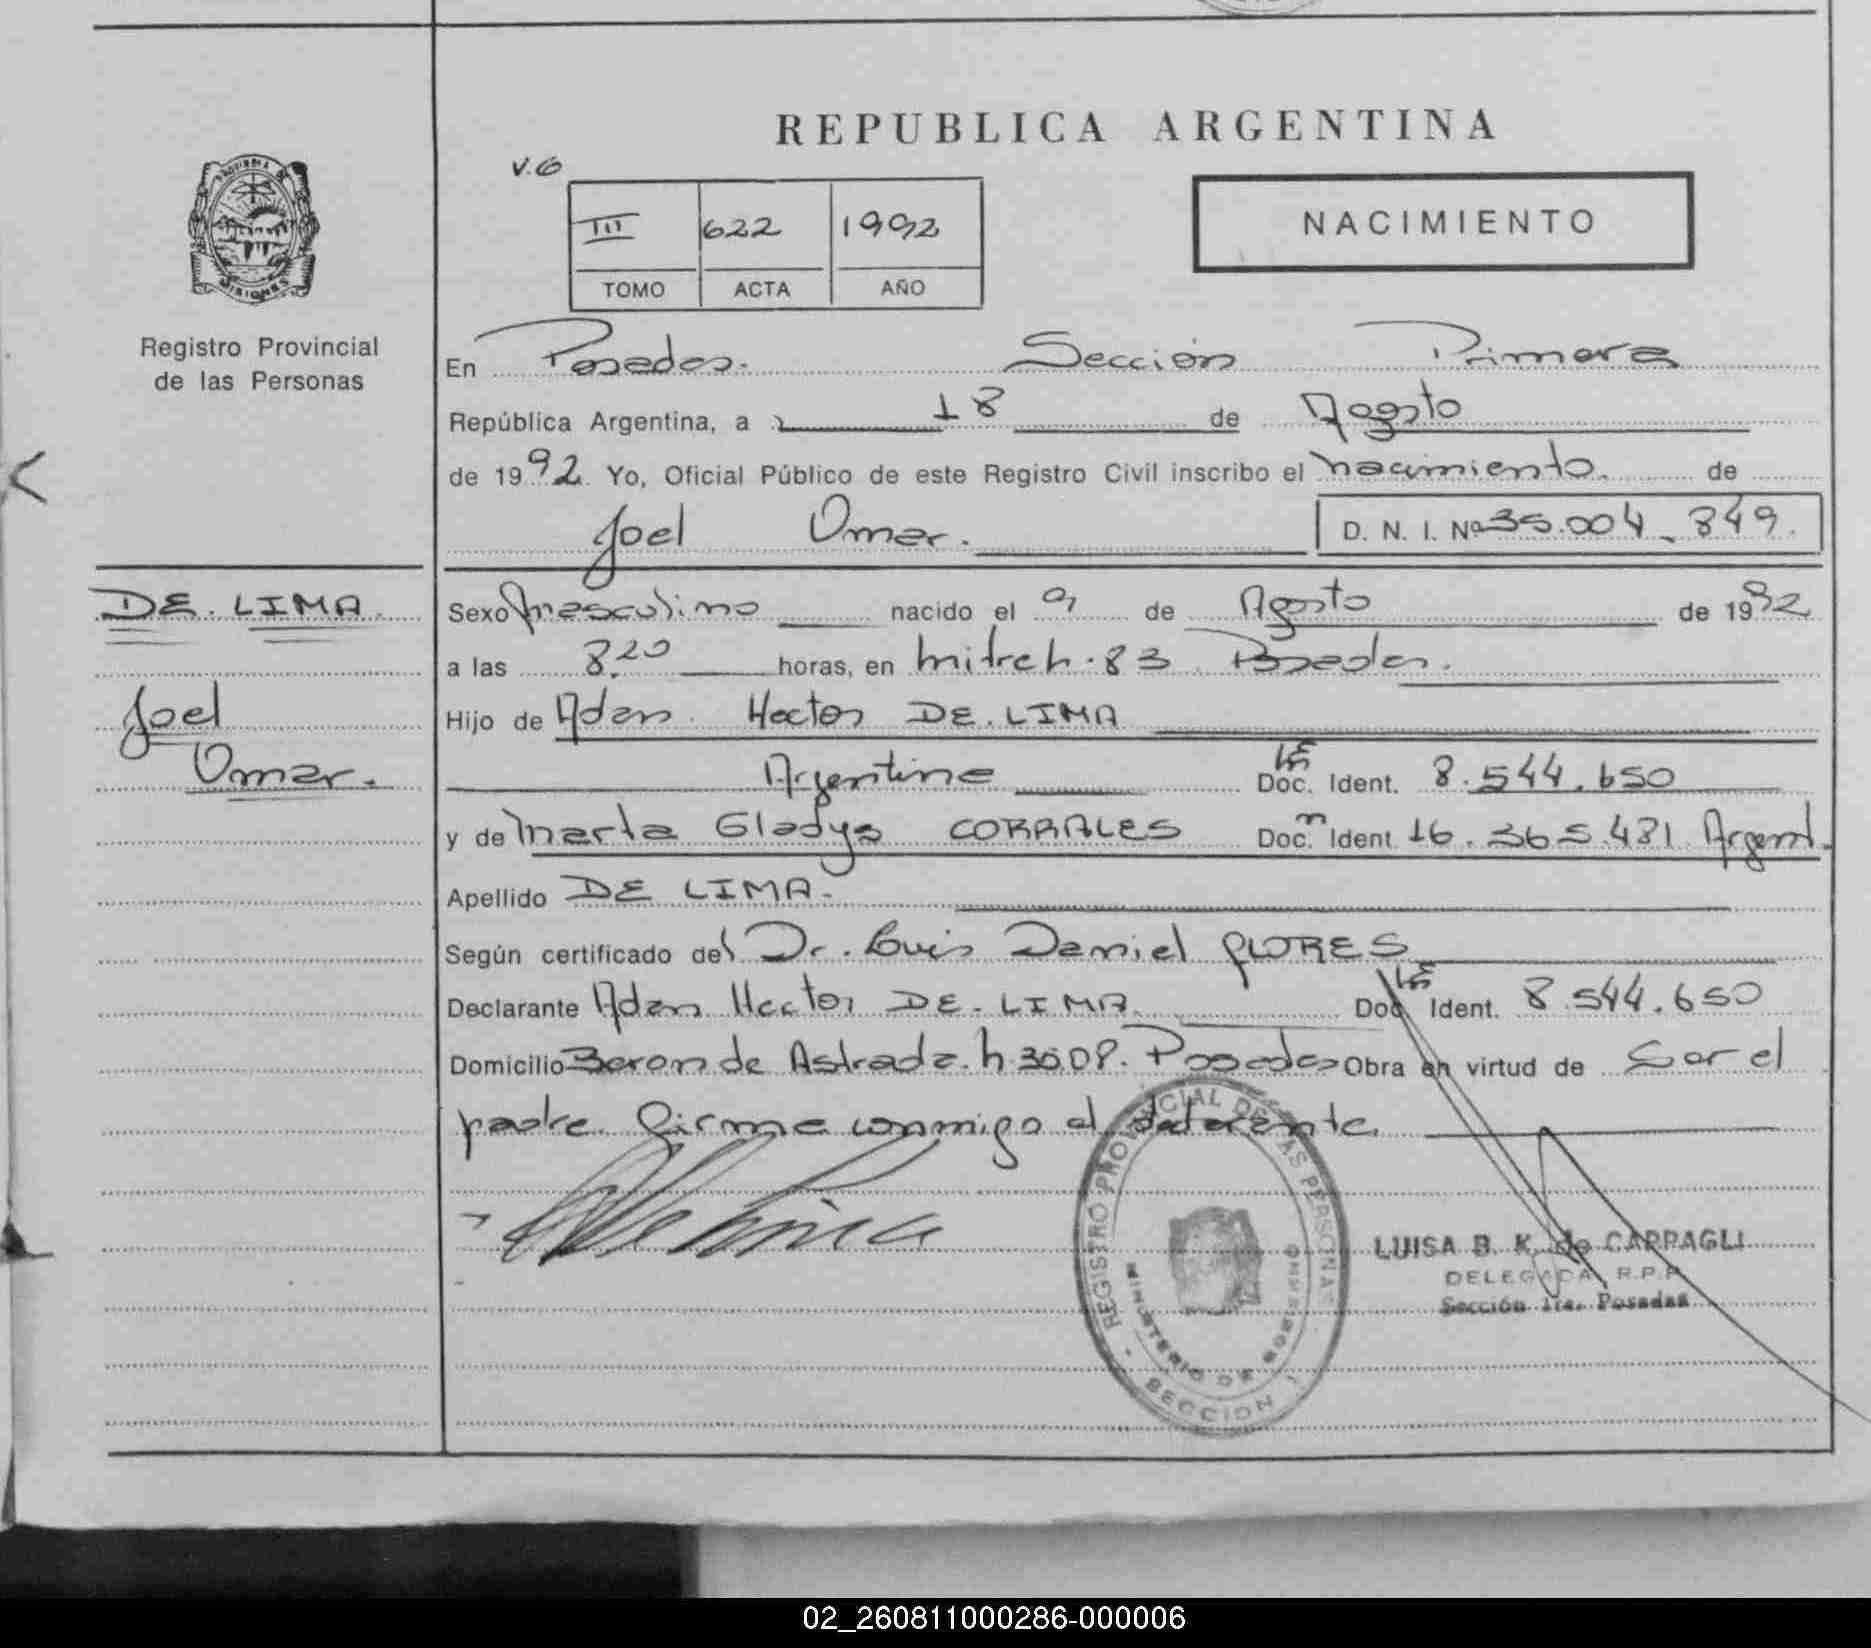 REPUBLICA ARGENTINA
V.6
III 622 1992
TOMO ACTA AÑO
NACIMIENTO
PROVINCIA DE MISIONES
Registro Provincial
de las Personas
En Posadas. Sección Primera
República Argentina, a 18 de Agosto
de 1992. Yo, Oficial Público de este Registro Civil inscribo el nacimiento. de
Joel Omar. D. N. I. Nº 35.004_849.
DE. LIMA.
Joel
Omar.
Sexo masculino nacido el 9 de Agosto de 1992
a las 8,20 horas, en Mitre h. 83 Posadas.
Hijo de Adan Hector DE. LIMA
Argentino LE Doc. Ident. 8.544.650
y de Marta Gladys CORRALES Doc. Ident. 16.365.431 Argent.
Apellido DE LIMA.
Según certificado del Dr. Luis Daniel FLORES
Declarante Adan Hector DE. LIMA. LE Doc. Ident. 8.544.650
Domicilio Beron de Astrada. h. 3609. Posadas Obra en virtud de Ser el
padre. Firma conmigo el declarante.
REGISTRO PROVINCIAL DE LAS PERSONAS
MINISTERIO DE GOBIERNO
SECCION 1
LUISA B. K. de CAPPAGLI
DELEGADA R.P.P.
Sección 1ra. Posadas
02_260811000286-000006